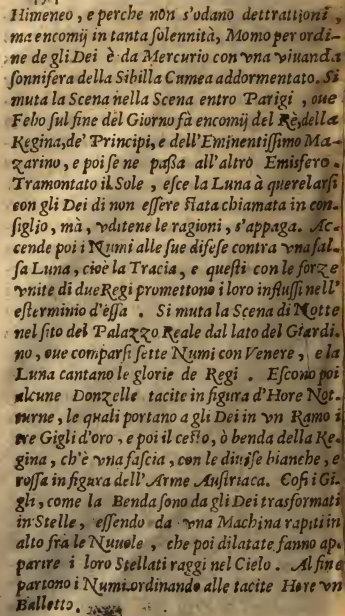 Himeneo, e perche non s'odano dettrattioni,
ma encomij in tanta solennità, Momo per ordi-
ne de gli Dei è da Mercurio con vna viuanda
sonnifera della Sibilla Cumea addormentato. Si
muta la Scena nella Scena entro Parigi, oue
Febo sul fine del Giorno fà encomij del Rè, della
Regina, de' Principi, e dell'Eminentissimo Ma-
zarino, e poi se ne passa all'altro Emisfero.
Tramontato il Sole, esce la Luna à querelarsi
con gli Dei di non essere stata chiamata in con-
siglio, mà, vditene le ragioni, s'appaga. Ac-
cende poi i Numi alle sue difese contra vna fal-
sa Luna, cioè la Tracia, e questi con le forze
vnite di due Regi promettono i loro influssi nell'
esterminio d'essa. Si muta la Scena di Notte
nel sito del Palazzo Reale dal lato del Giardi-
no, oue comparsi sette Numi con Venere, e la
Luna cantano le glorie de Regi. Escono poi
alcune Donzelle tacite in figura d'Hore Not-
turne, le quali portano a gli Dei in vn Ramo i
tre Gigli d'oro, e poi il cesto, ò benda della Re-
gina, ch'è vna fascia, con le diuise bianche, e
rossa in figura dell'Arme Austriaca. Così i Gi-
gli, come la Benda sono da gli Dei trasformati
in Stelle, essendo da vna Machina rapiti in
alto fra le Nuuole, che poi dilatate fanno ap-
parire i loro Stellati raggi nel Cielo. Al fine
partono i Numi ordinando alle tacite Hore vn
Balletto.